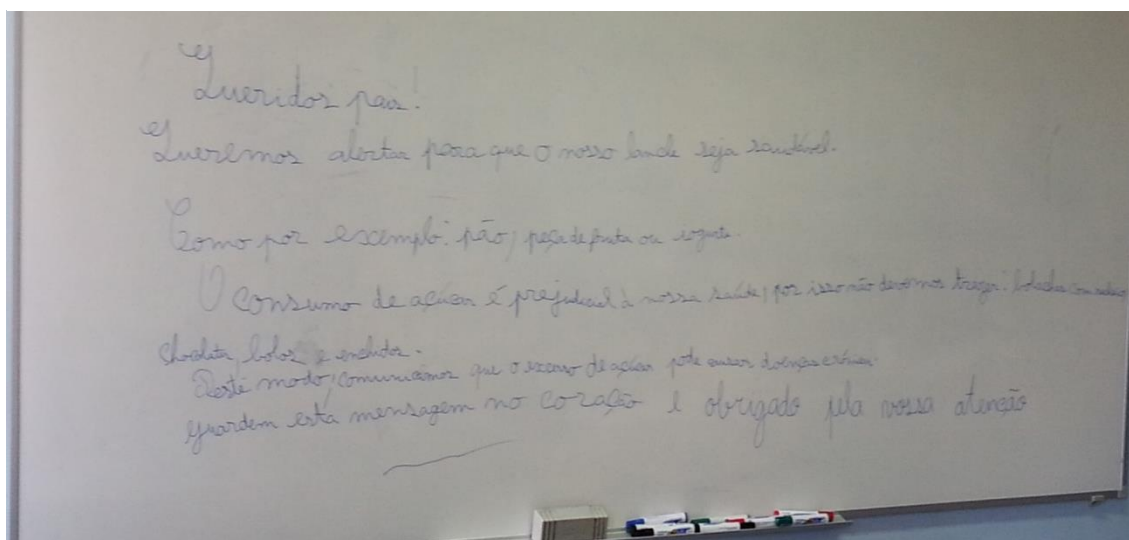 Queridos pais!
Queremos alertar para que o nosso lanche seja saudável.
Como por exemplo: pão, peça de fruta ou iogurte.
O consumo de açúcar é prejudicial à nossa saúde, por isso não devemos trazer: bolachas com
chocolate, bolos e enchidos.
Deste modo, comunicamos que o excesso de açúcar pode causar doenças crónicas.
Guardem esta mensagem no coração e obrigado pela vossa atenção